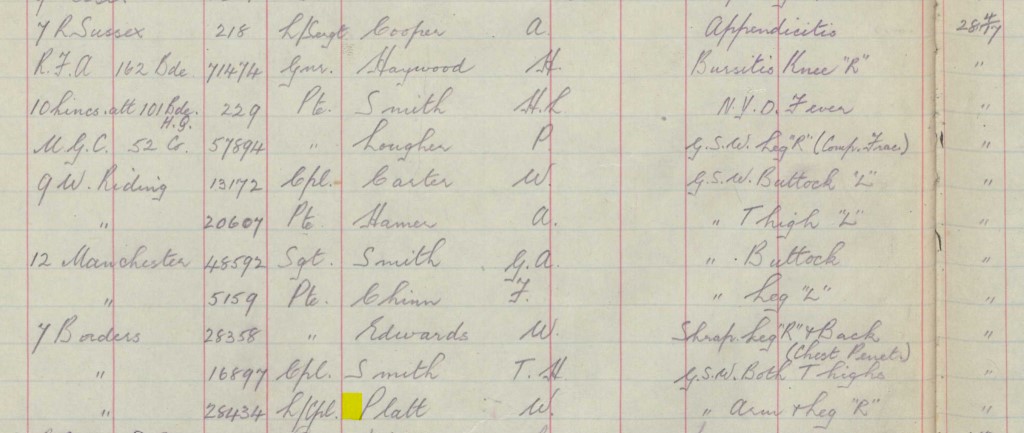 7 R Sussex 218 L/Sergt Cooper A. Appendicitis 28.4.17
R.F.A 162 Bde. 71474 Gnr. Haywood H. Bursitis Knee "R" "
10 Lincs. att 101 Bde. H.Q. 229 Pte. Smith H.L. N.Y.D. Fever "
M.G.C. 52 Co. 57894 " Lougher P. G.S.W. Leg "R" (Comp. Frac) "
9 W. Riding 13172 Cpl. Carter W. G.S.W. Buttock "L" "
" 20607 Pte Hamer A. " Thigh "L" "
12 Manchester 48592 Sgt. Smith G.A. " Buttock "
" 5159 Pte. Chinn F. " Leg "L" "
7 Borders 28358 " Edwards W. Shrap. Leg "R" + Back (Chest Penetr) "
" 16897 Cpl. Smith T.H. G.S.W. Both Thighs "
" 28434 L/Cpl. Platt W. " Arm + Leg "R" "